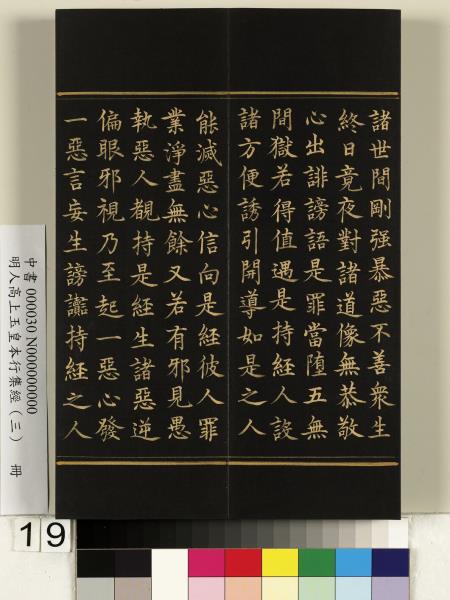 諸世間剛强暴惡不善衆生
終日竟夜對諸道像無恭敬
心出誹謗語是罪當堕五無
間獄若得值遇是持経人設
諸方便誘引開導如是之人
能滅惡心信向是経彼人罪
業淨盡無餘又若有邪見愚
執惡人覩持是経生諸惡逆
偏眼邪視乃至起一惡心發
一惡言妄生謗讟持経之人
中書 000030 N000000000
明人高上玉皇本行集經（三） 冊
19